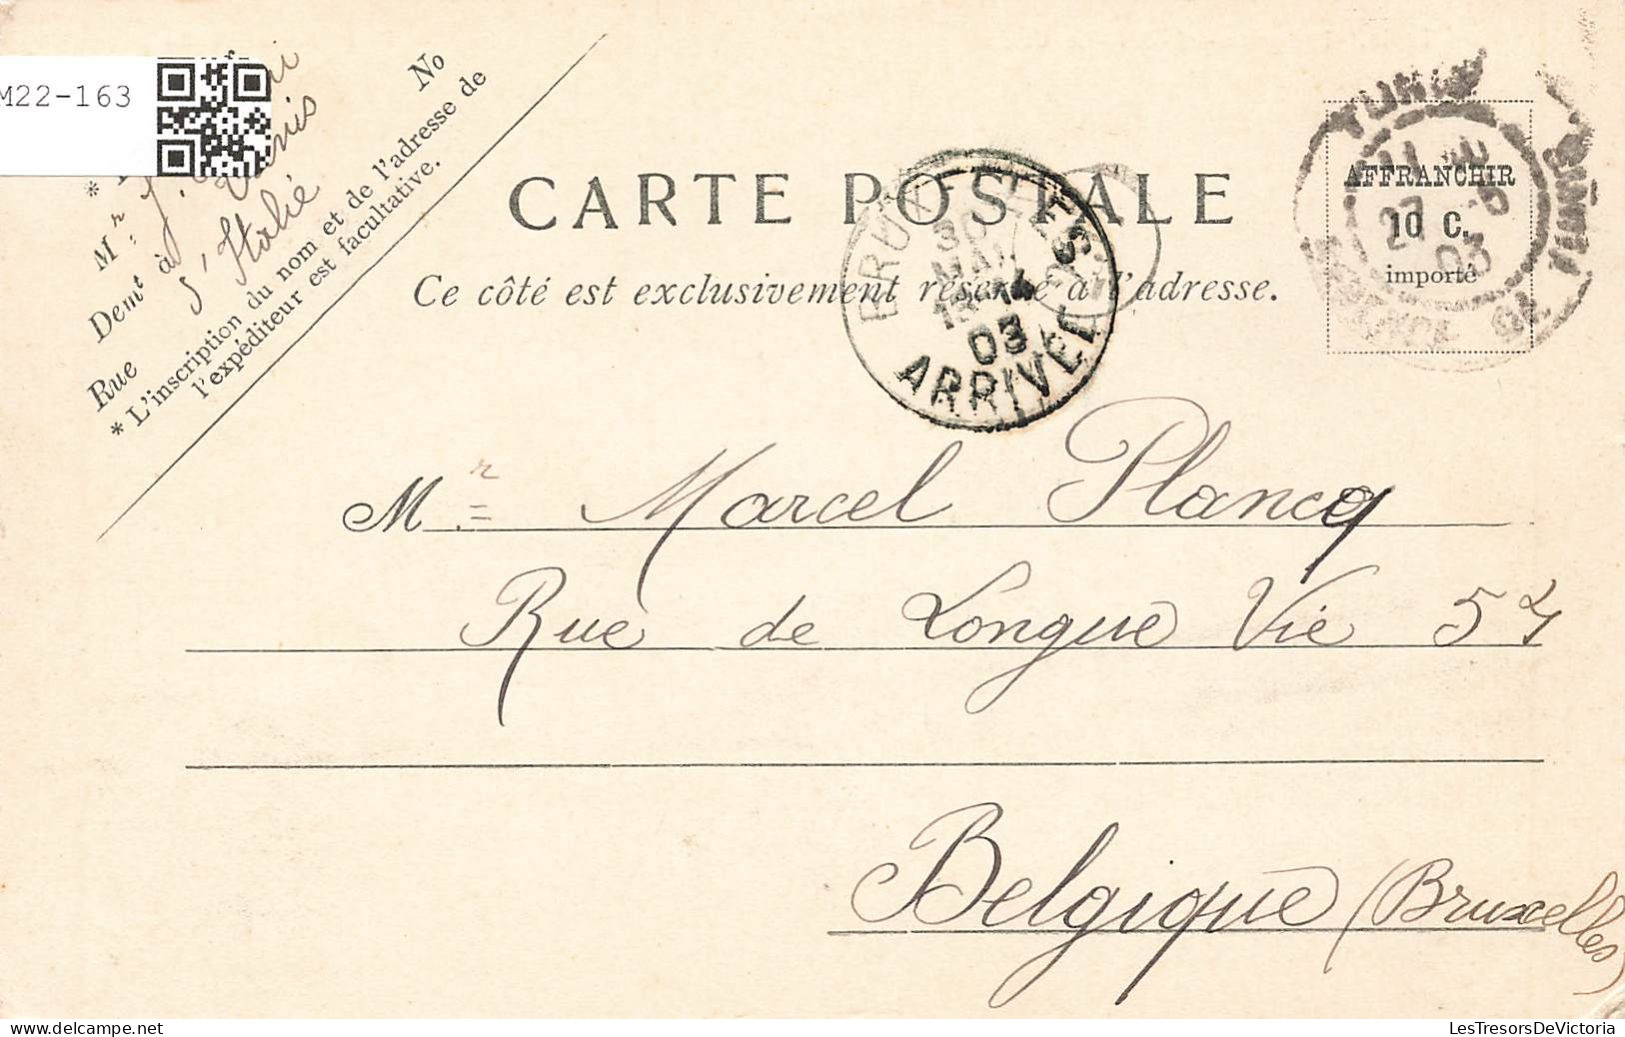 M22-163
No
Mr
Demt à Tunis
Rue d'Italie
* L'inscription du nom et de l'adresse de
l'expéditeur est facultative.
CARTE POSTALE
Ce côté est exclusivement réservé à l'adresse.
BRUXELLES
30
MAI
03
ARRIVÉE
TUNIS
27
03
AFFRANCHIR
10 C.
importé
Mr Marcel Plancq
Rue de Longue Vie 57
Belgique (Bruxelles)
LesTresorsDeVictoria